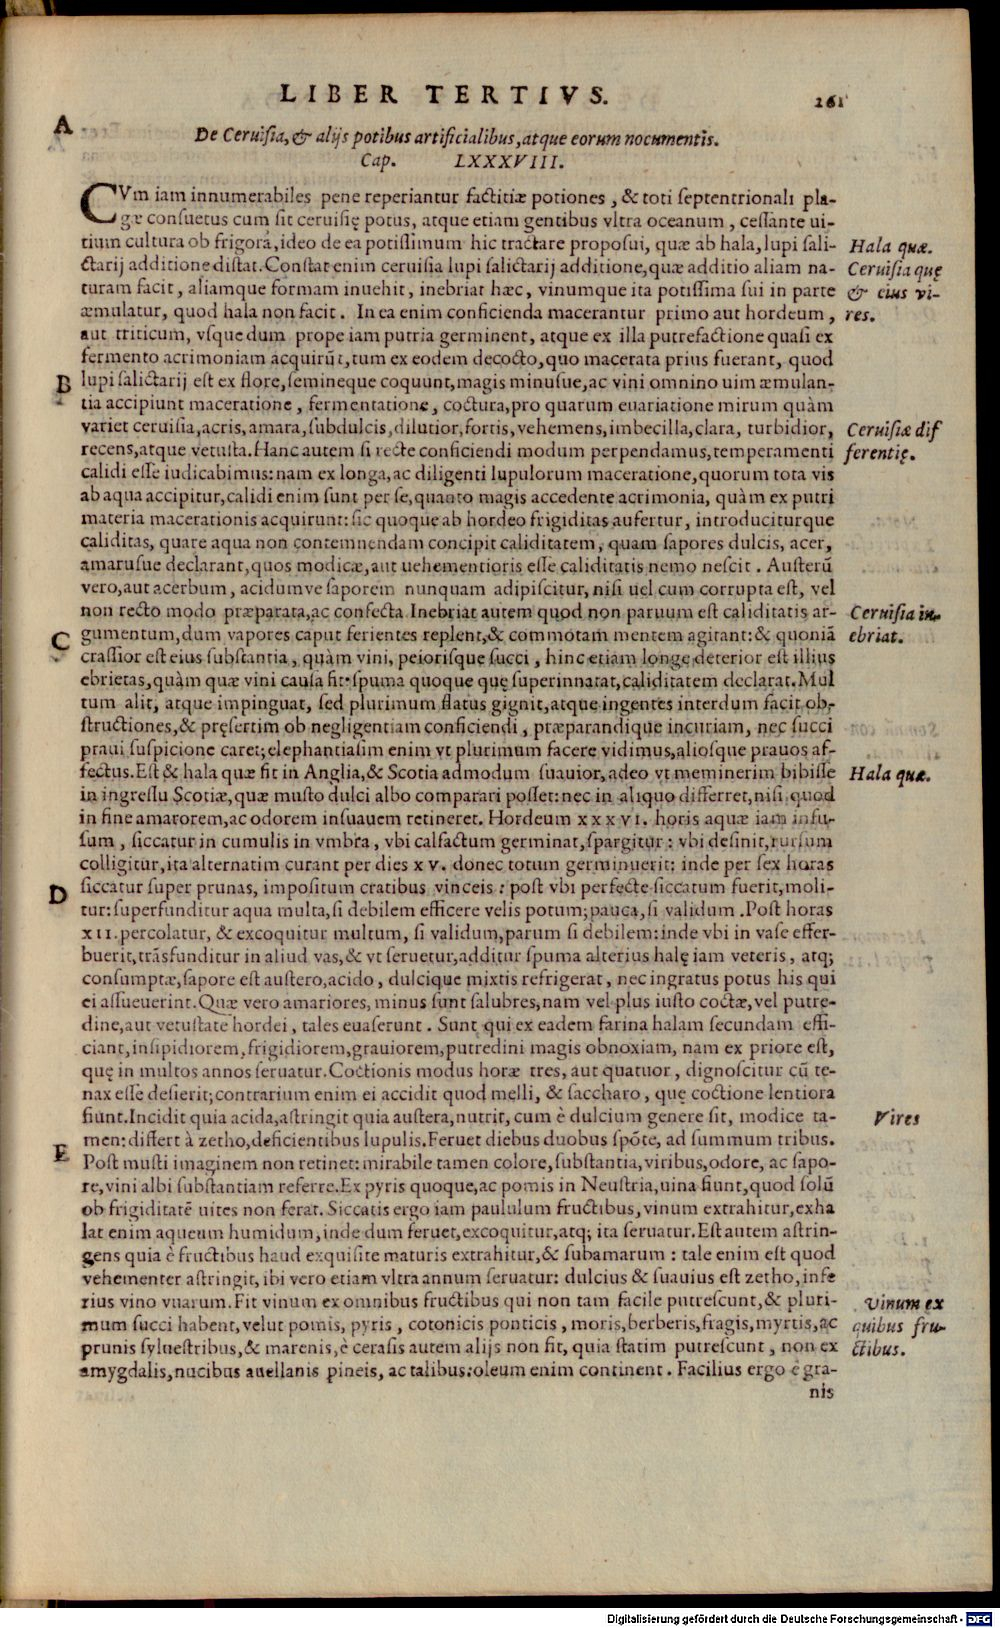 LIBER TERTIVS. 261
A
De Ceruisia, & alijs potibus artificialibus, atque eorum nocumentis.
Cap. LXXXVIII.
CVm iam innumerabiles pene reperiantur factitiæ potiones, & toti septentrionali pla-
gæ consuetus cum sit ceruisię potus, atque etiam gentibus vltra oceanum, cessante ui-
tium cultura ob frigora, ideo de ea potissimum hic tractare proposui, quæ ab hala, lupi sali-
Hala quæ.
ctarij additione distat. Constat enim ceruisia lupi salictarij additione, quæ additio aliam na-
Ceruisia quę
turam facit, aliamque formam inuehit, inebriat hæc, vinumque ita potissima sui in parte
& eius vi-
æmulatur, quod hala non facit. In ea enim conficienda macerantur primo aut hordeum,
res.
aut triticum, vsque dum prope iam putria germinent, atque ex illa putrefactione quasi ex
fermento acrimoniam acquirũt, tum ex eodem decocto, quo macerata prius fuerant, quod
B
lupi salictarij est ex flore, semineque coquunt, magis minusue, ac vini omnino uim æmulan-
tia accipiunt maceratione, fermentatione, coctura, pro quarum euariatione mirum quàm
variet ceruisia, acris, amara, subdulcis, dilutior, fortis, vehemens, imbecilla, clara, turbidior,
Ceruisiæ dif
recens, atque vetusta. Hanc autem si recte conficiendi modum perpendamus, temperamenti
ferentię.
calidi esse iudicabimus: nam ex longa, ac diligenti lupulorum maceratione, quorum tota vis
ab aqua accipitur, calidi enim sunt per se, quanto magis accedente acrimonia, quàm ex putri
materia macerationis acquirunt: sic quoque ab hordeo frigiditas aufertur, introduciturque
caliditas, quare aqua non contemnendam concipit caliditatem, quam sapores dulcis, acer,
amarusue declarant, quos modicæ, aut uehementioris esse caliditatis nemo nescit. Austerũ
vero, aut acerbum, acidumve saporem nunquam adipiscitur, nisi uel cum corrupta est, vel
non recto modo præparata, ac confecta. Inebriat autem quod non paruum est caliditatis ar-
Ceruisia in-
C
gumentum, dum vapores caput ferientes replent, & commotam mentem agitant: & quoniã
ebriat.
crassior est eius substantia, quàm vini, peiorisque succi, hinc etiam longe deterior est illius
ebrietas, quàm quæ vini causa fit. spuma quoque quę superinnatat, caliditatem declarat. Mul
tum alit, atque impinguat, sed plurimum flatus gignit, atque ingentes interdum facit ob-
structiones, & pręsertim ob negligentiam conficiendi, præparandique incuriam, nec succi
praui suspicione caret; elephantiasim enim vt plurimum facere vidimus, aliosque prauos af-
fectus. Est & hala quæ fit in Anglia, & Scotia admodum suauior, adeo vt meminerim bibisse
Hala quæ.
in ingressu Scotiæ, quæ musto dulci albo comparari posset: nec in aliquo differret, nisi quod
in fine amarorem, ac odorem insuauem retineret. Hordeum xxxvi. horis aquæ iam infu-
sum, siccatur in cumulis in vmbra, vbi calfactum germinat, spargitur: vbi desinit, rursum
colligitur, ita alternatim curant per dies xv. donec totum germinuerit: inde per sex horas
D
siccatur super prunas, impositum cratibus vinceis: post vbi perfecte siccatum fuerit, moli-
tur: superfunditur aqua multa, si debilem efficere velis potum; pauca, si validum. Post horas
xii. percolatur, & excoquitur multum, si validum, parum si debilem: inde vbi in vase effer-
buerit, trãsfunditur in aliud vas, & vt seruetur, additur spuma alterius halę iam veteris, atq;
consumptæ, sapore est austero, acido, dulcique mixtis refrigerat, nec ingratus potus his qui
ei assueuerint. Quæ vero amariores, minus sunt salubres, nam vel plus iusto coctæ, vel putre-
dine, aut vetustate hordei, tales euaserunt. Sunt qui ex eadem farina halam secundam effi-
ciant, insipidiorem, frigidiorem, grauiorem, putredini magis obnoxiam, nam ex priore est,
quę in multos annos seruatur. Coctionis modus horæ tres, aut quatuor, dignoscitur cũ te-
nax esse desierit; contrarium enim ei accidit quod melli, & saccharo, quę coctione lentiora
fiunt. Incidit quia acida, astringit quia austera, nutrit, cum è dulcium genere sit, modice ta-
Vires
men: differt à zetho, deficientibus lupulis. Feruet diebus duobus spõte, ad summum tribus.
E
Post musti imaginem non retinet: mirabile tamen colore, substantia, viribus, odore, ac sapo-
re, vini albi substantiam referre. Ex pyris quoque, ac pomis in Neustria, uina fiunt, quod solũ
ob frigiditatẽ uites non ferat. Siccatis ergo iam paululum fructibus, vinum extrahitur, exha
lat enim aqueum humidum, inde dum feruet, excoquitur, atq; ita seruatur. Est autem astrin-
gens quia è fructibus haud exquisite maturis extrahitur, & subamarum: tale enim est quod
vehementer astringit, ibi vero etiam vltra annum seruatur: dulcius & suauius est zetho, infe
rius vino vuarum. Fit vinum ex omnibus fructibus qui non tam facile putrescunt, & pluri-
Vinum ex
mum succi habent, velut pomis, pyris, cotonicis ponticis, moris, berberis, fragis, myrtis, ac
quibus fru-
prunis syluestribus, & marenis, è cerasis autem alijs non fit, quia statim putrescunt, non ex
ctibus.
amygdalis, nucibus auellanis pineis, ac talibus: oleum enim continent. Facilius ergo è gra-
nis
Digitalisierung gefördert durch die Deutsche Forschungsgemeinschaft - DFG